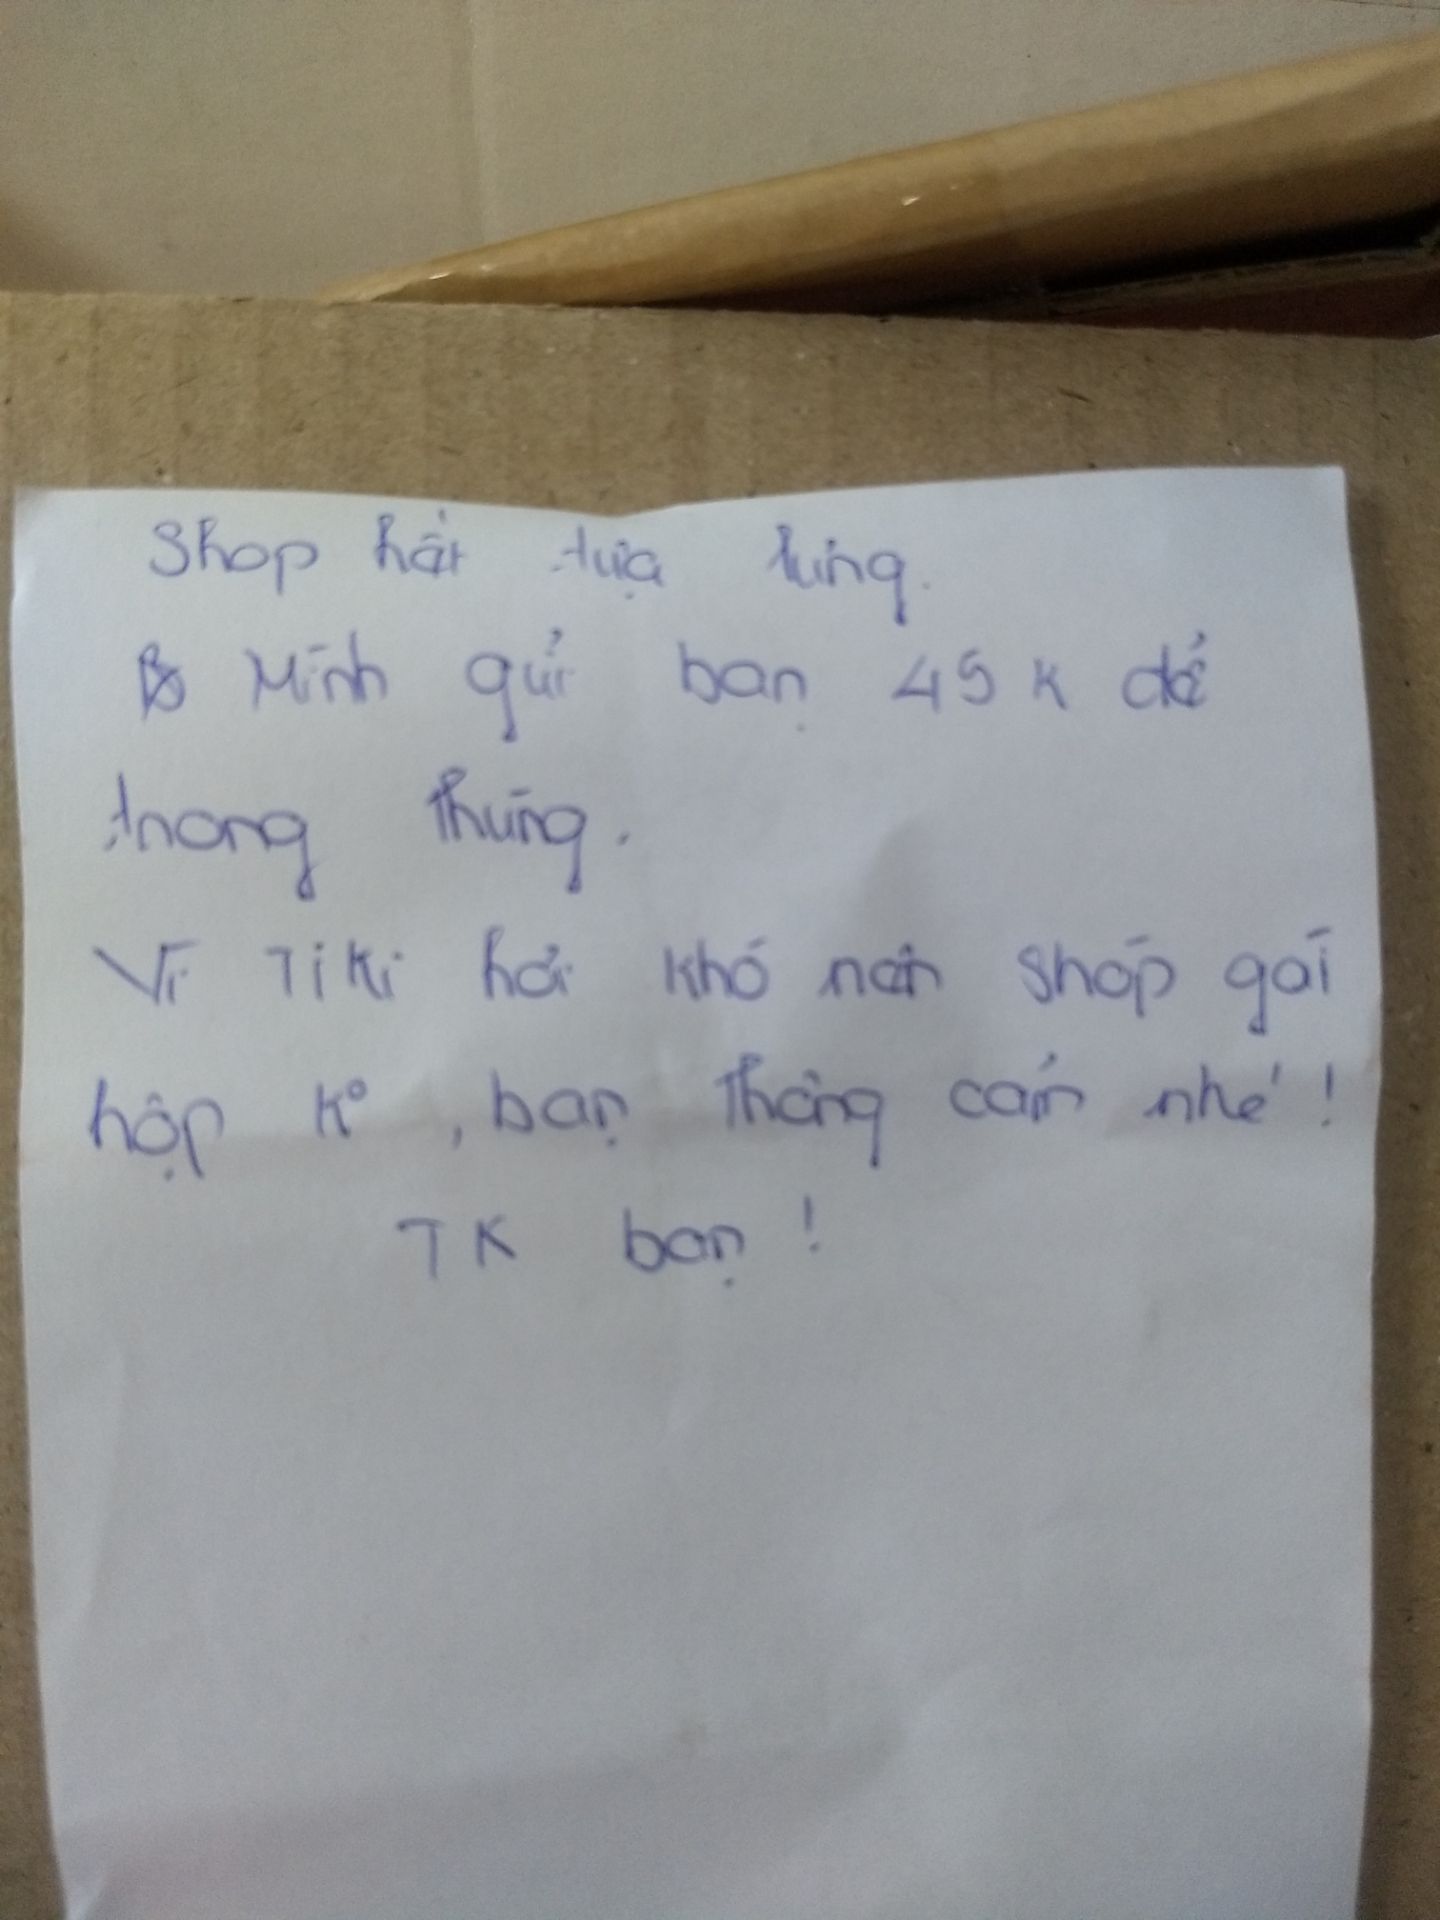 Shop hết tựa lưng.
Mình gửi bạn 45K để
trong thùng.
Vì Tiki hơi khó nên shop gói
hộp K°, bạn thông cảm nhé!
TK bạn!